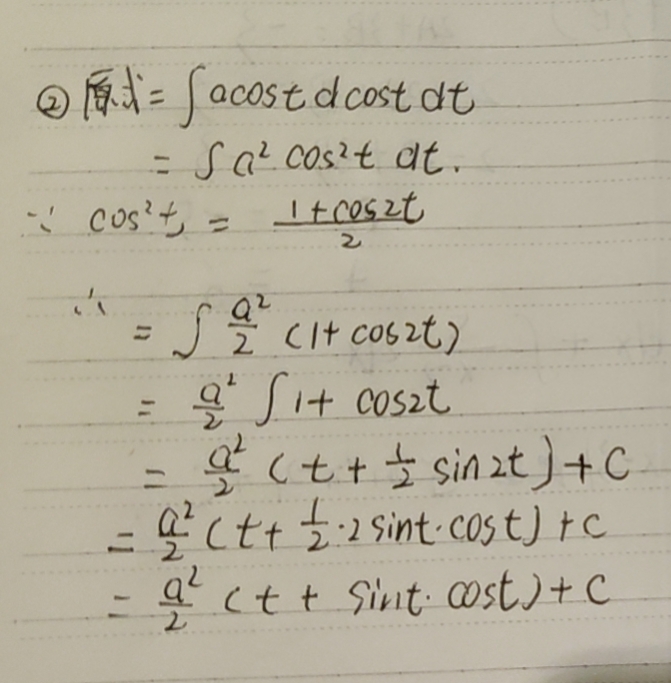 ② 原式 = ∫ acost dcost dt
= ∫ a² cos²t dt.
∵ cos²t = (1+cos2t)/2
∴ = ∫ a²/2 (1+ cos2t)
= a²/2 ∫ 1+ cos2t
= a²/2 (t + 1/2 sin2t) + C
= a²/2 (t + 1/2 · 2 sint·cost) + C
= a²/2 (t + sint·cost) + C